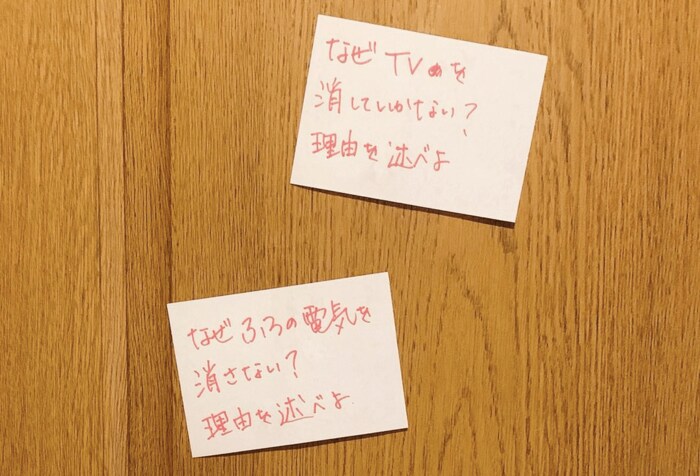 なぜTVを
消していかない?
理由を述べよ
なぜふろの電気を
消さない?
理由を述べよ.